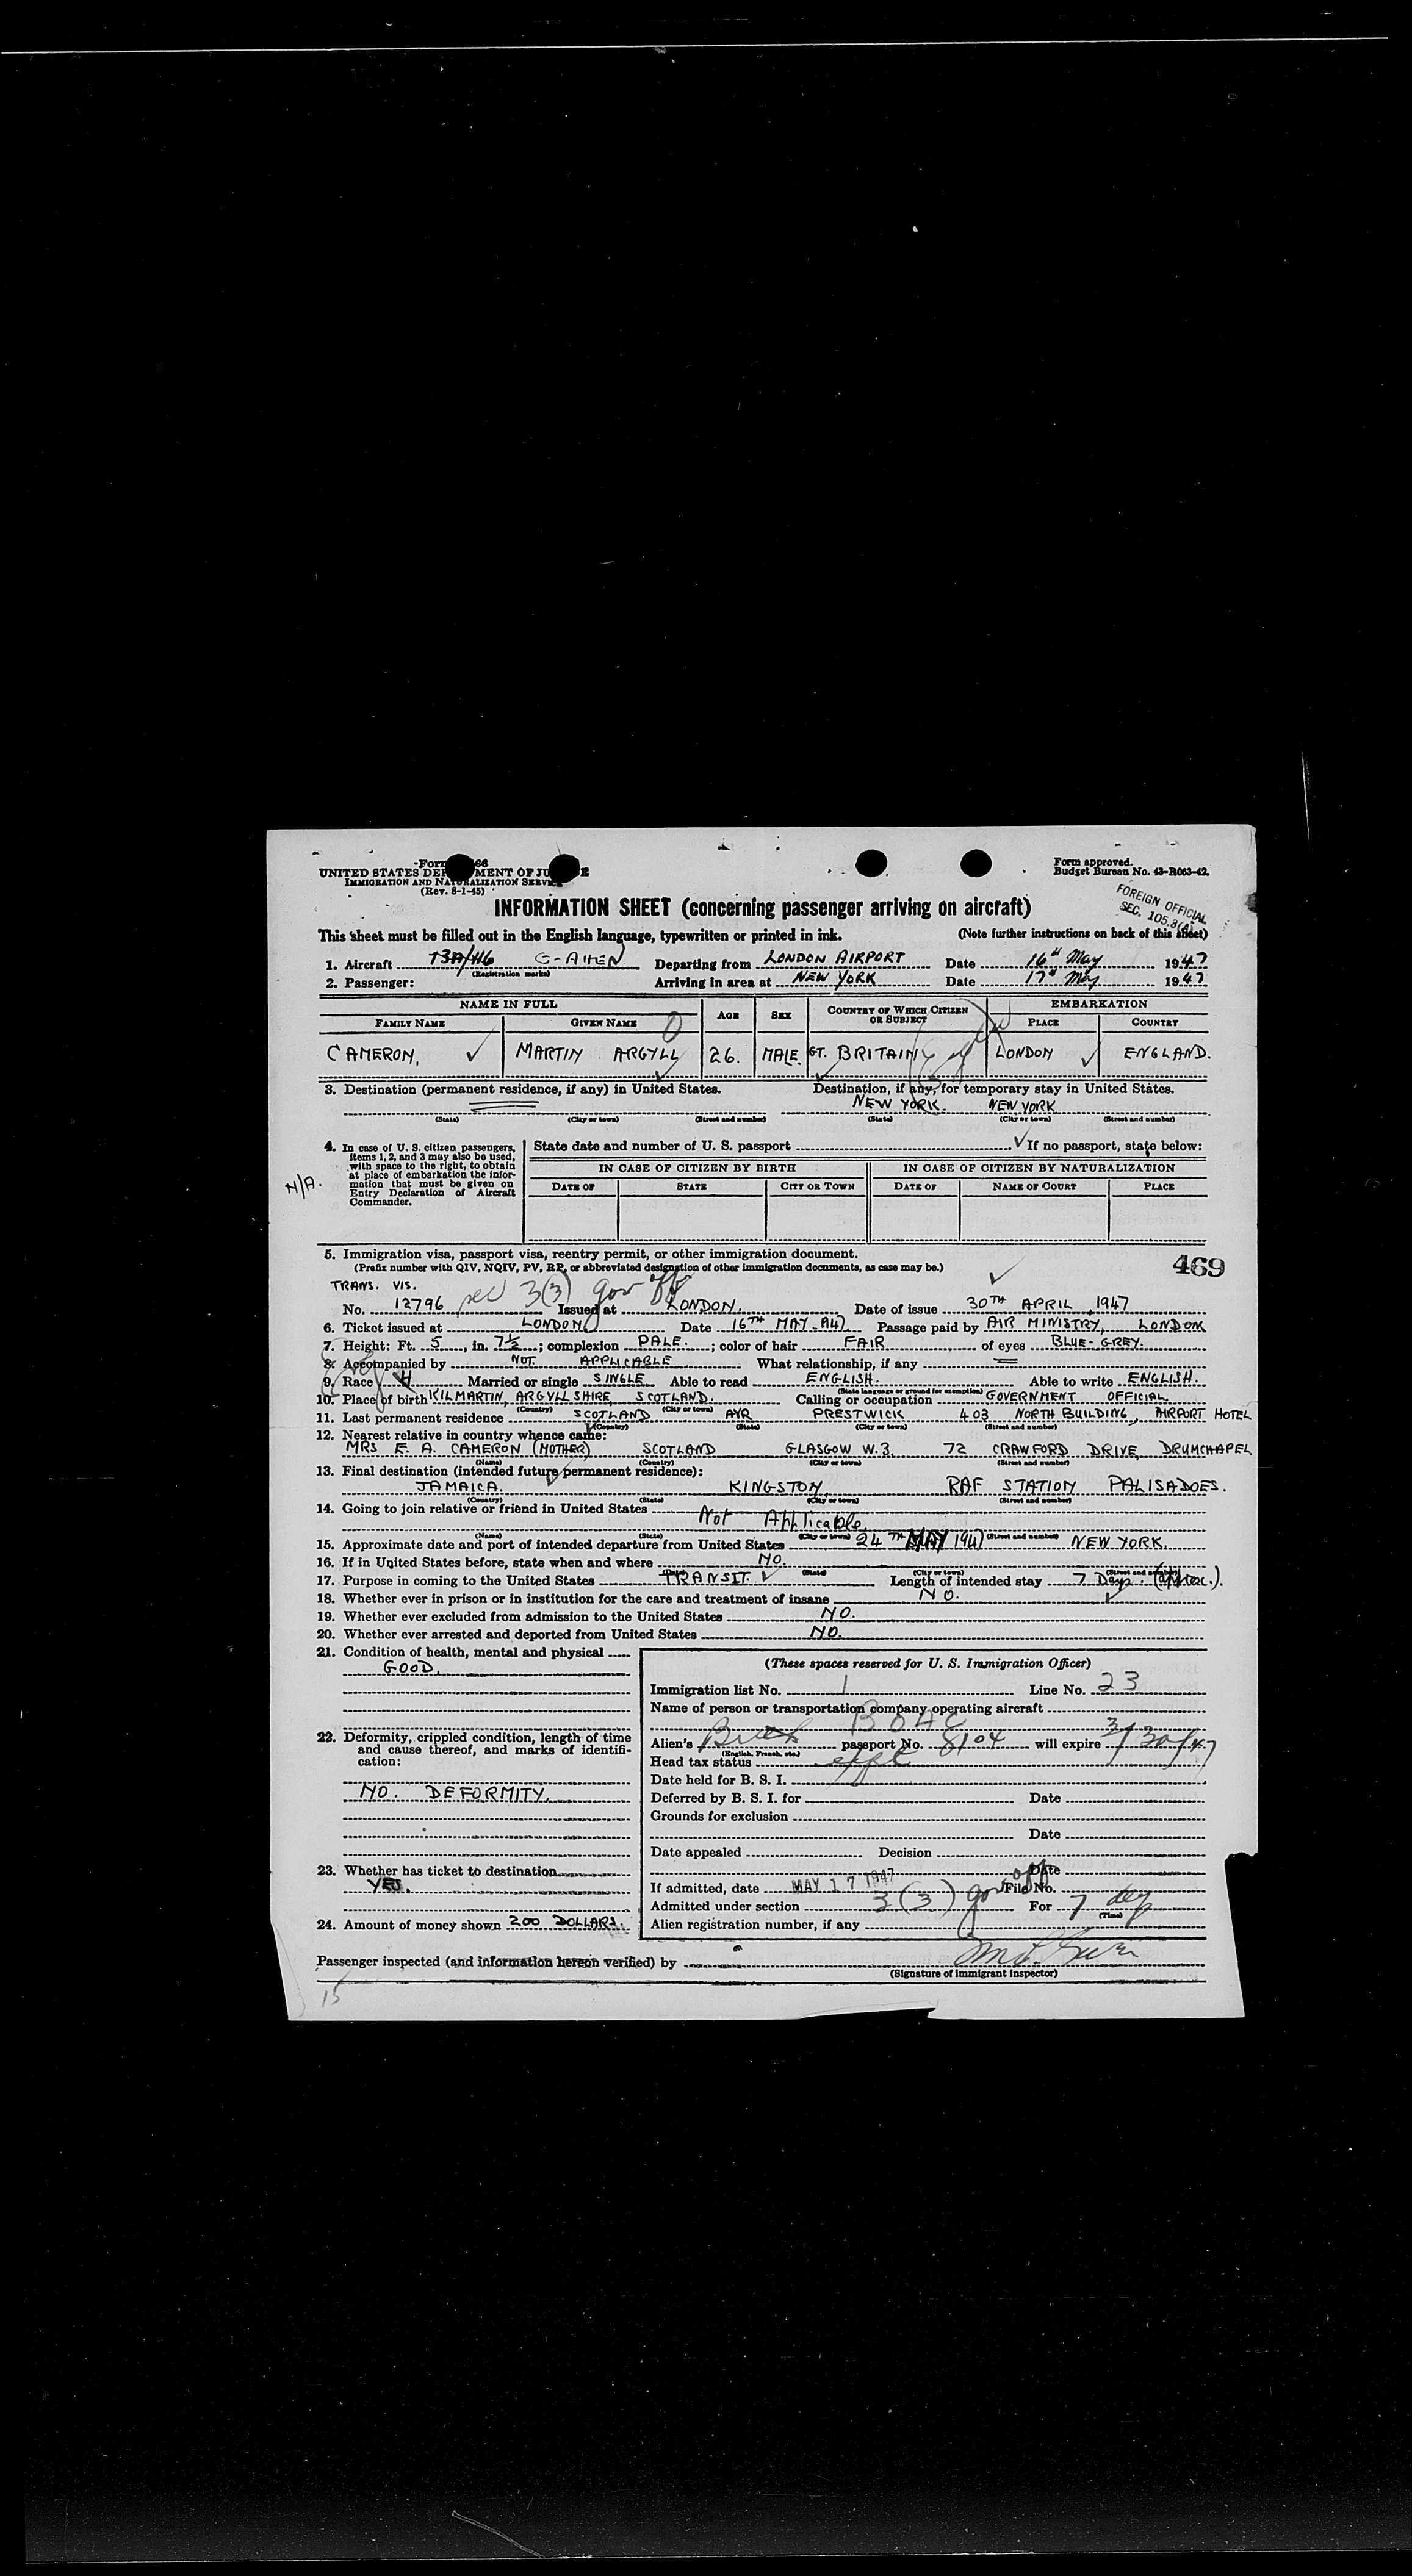 UNITED STATES DEPARTMENT OF JUSTICE
IMMIGRATION AND NATURALIZATION SERVICE
(Rev. 8-1-45)
Form approved.
Budget Bureau No. 43-R063-42.
FOREIGN OFFICIAL
SEC. 105.3
INFORMATION SHEET (concerning passenger arriving on aircraft)
This sheet must be filled out in the English language, typewritten or printed in ink. (Note further instructions on back of this sheet)
1. Aircraft G-AHEN Departing from LONDON AIRPORT Date 16th May 1947
(Registration marks)
2. Passenger: Arriving in area at NEW YORK Date 17th May 1947
NAME IN FULL AGE SEX COUNTRY OF WHICH CITIZEN OR SUBJECT EMBARKATION
FAMILY NAME GIVEN NAME PLACE COUNTRY
CAMERON, MARTIN ARGYLL 26. MALE. GT. BRITAIN LONDON ENGLAND.
3. Destination (permanent residence, if any) in United States. Destination, if any, for temporary stay in United States.
NEW YORK. NEW YORK
(State) (City or town) (Street and number) (State) (City or town) (Street and number)
N/A.
4. In case of U. S. citizen passengers, items 1, 2, and 3 may also be used, with space to the right, to obtain at place of embarkation the information that must be given on Entry Declaration of Aircraft Commander.
State date and number of U. S. passport If no passport, state below:
IN CASE OF CITIZEN BY BIRTH IN CASE OF CITIZEN BY NATURALIZATION
DATE OF STATE CITY OR TOWN DATE OF NAME OF COURT PLACE
5. Immigration visa, passport visa, reentry permit, or other immigration document.
(Prefix number with QIV, NQIV, PV, RP, or abbreviated designation of other immigration documents, as case may be.)
469
TRANS. VIS. sec 3(3) gov off
No. 12796 Issued at LONDON. Date of issue 30TH APRIL, 1947
6. Ticket issued at LONDON Date 16TH MAY 1947 Passage paid by AIR MINISTRY, LONDON
7. Height: Ft. 5, in. 7½; complexion PALE.; color of hair FAIR of eyes BLUE-GREY.
8. Accompanied by NOT APPLICABLE What relationship, if any
9. Race Married or single SINGLE Able to read ENGLISH. Able to write ENGLISH.
(State language or ground for exemption)
10. Place of birth KILMARTIN, ARGYLLSHIRE, SCOTLAND. Calling or occupation GOVERNMENT OFFICIAL.
(Country) (City or town)
11. Last permanent residence SCOTLAND AYR PRESTWICK 403 NORTH BUILDING, AIRPORT HOTEL
(Country) (State) (City or town) (Street and number)
12. Nearest relative in country whence came:
MRS E. A. CAMERON (MOTHER) SCOTLAND GLASGOW W.3. 72 CRAWFORD DRIVE, DRUMCHAPEL
(Name) (Country) (City or town) (Street and number)
13. Final destination (intended future permanent residence):
JAMAICA. KINGSTON RAF STATION PALISADOES.
(Country) (State) (City or town) (Street and number)
14. Going to join relative or friend in United States Not Applicable
(Name) (State) (City or town) (Street and number)
15. Approximate date and port of intended departure from United States 24TH MAY 1947 NEW YORK.
16. If in United States before, state when and where NO.
(State) (City or town) (Street and number)
17. Purpose in coming to the United States TRANSIT. Length of intended stay 7 Days. (approx.).
18. Whether ever in prison or in institution for the care and treatment of insane NO.
19. Whether ever excluded from admission to the United States NO.
20. Whether ever arrested and deported from United States NO.
21. Condition of health, mental and physical
GOOD.
22. Deformity, crippled condition, length of time and cause thereof, and marks of identification:
NO. DEFORMITY.
23. Whether has ticket to destination
YES.
24. Amount of money shown 200 DOLLARS.
(These spaces reserved for U. S. Immigration Officer)
Immigration list No. 1 Line No. 23
Name of person or transportation company operating aircraft
BOAC
Alien's British passport No. 8104 will expire 3/30/47
(English, French, etc.)
Head tax status
Date held for B. S. I.
Deferred by B. S. I. for Date
Grounds for exclusion
Date
Date appealed Decision
Date
If admitted, date MAY 17 1947 File No.
Admitted under section 3(3) gov off For 7 day
(Time)
Alien registration number, if any
Passenger inspected (and information hereon verified) by
(Signature of immigrant inspector)
15